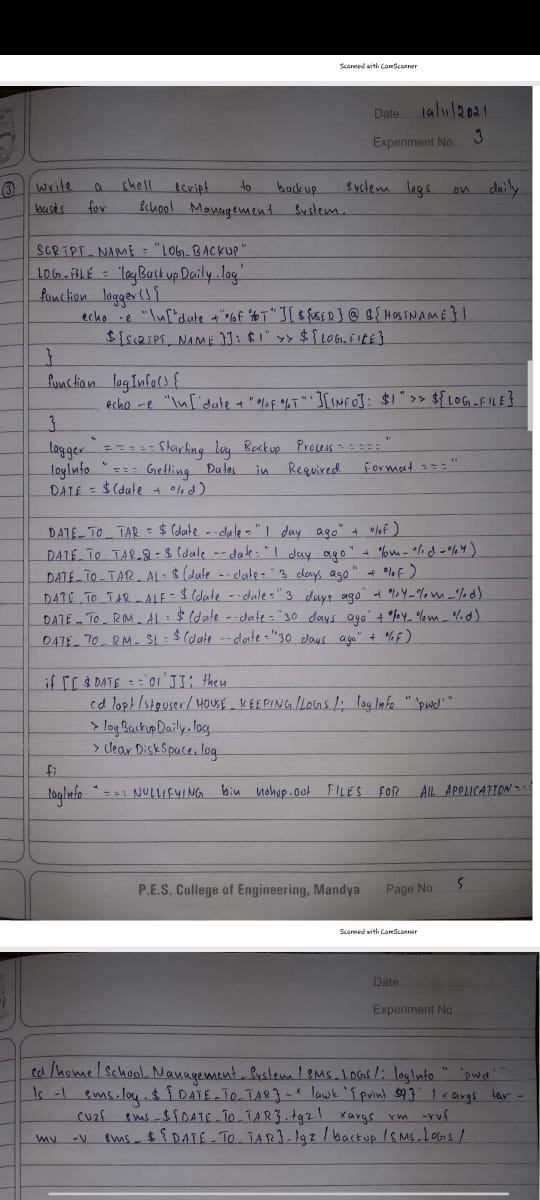 Scanned with CamScanner
Date 19/11/2021
Experiment No. 3
③ Write a shell script to backup system logs on daily
basis for School Management System.
SCRIPT_NAME = "LOG_BACKUP"
LOG-FILE = 'logBackupDaily.log'
function logger() {
echo -e "\n['date +"%F %T"][${USER}@${HOSTNAME}|
${SCRIPT_NAME}]: $1" >> ${LOG_FILE}
}
function logInfo() {
echo -e "\n['date + "%F %T"'][INFO]: $1" >> ${LOG_FILE}
}
logger "===== Starting log Backup Process ====="
logInfo "=== Getting Dates in Required format ==="
DATE = $(date + %d)
DATE_TO_TAR = $(date --date="1 day ago" + %F)
DATE_TO_TAR_2 = $(date --date="1 day ago" + %m-%d-%Y)
DATE_TO_TAR_AL = $(date --date="3 days ago" + %F)
DATE_TO_TAR_ALF = $(date --date="3 days ago" + %Y-%m_%d)
DATE_TO_RM_AL = $(date --date="30 days ago" + %Y_%m_%d)
DATE_TO_RM_SL = $(date --date="30 days ago" + %F)
if [[ $DATE == '01' ]]; then
cd /opt/ HOUSE_KEEPING/LOGS/; logInfo "'pwd'"
> logBackupDaily.log
> clearDiskSpace.log
fi
logInfo "=== NULLIFYING bin nohup.out FILES FOR ALL APPLICATION ===
P.E.S. College of Engineering, Mandya Page No. 5
Scanned with CamScanner
Date
Experiment No.
cd /home/School_Management_System/SMS_LOGS/; logInfo "'pwd'"
ls -l sms.log.${DATE_TO_TAR}-* |awk '{print $9}' | xargs tar -
cvzf sms_${DATE_TO_TAR}.tgz| xargs rm -rvf
mv -v sms_${DATE_TO_TAR}.tgz /backup/SMS_LOGS/